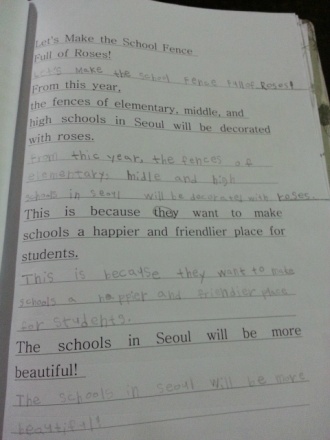 Let's Make the School Fence
Full of Roses!
Let's Make the school Fence Full of Roses!
From this year,
the fences of elementary, middle, and
high schools in Seoul will be decorated
with roses.
From this year, the fences of
elementary. midle and high
schools in seoul will be decorated with roses.
This is because they want to make
schools a happier and friendlier place for
students.
This is because they want to make
schools a happier and friendlier place
for students.
The schools in Seoul will be more
beautiful!
The schools in seoul will be more
beautiful!